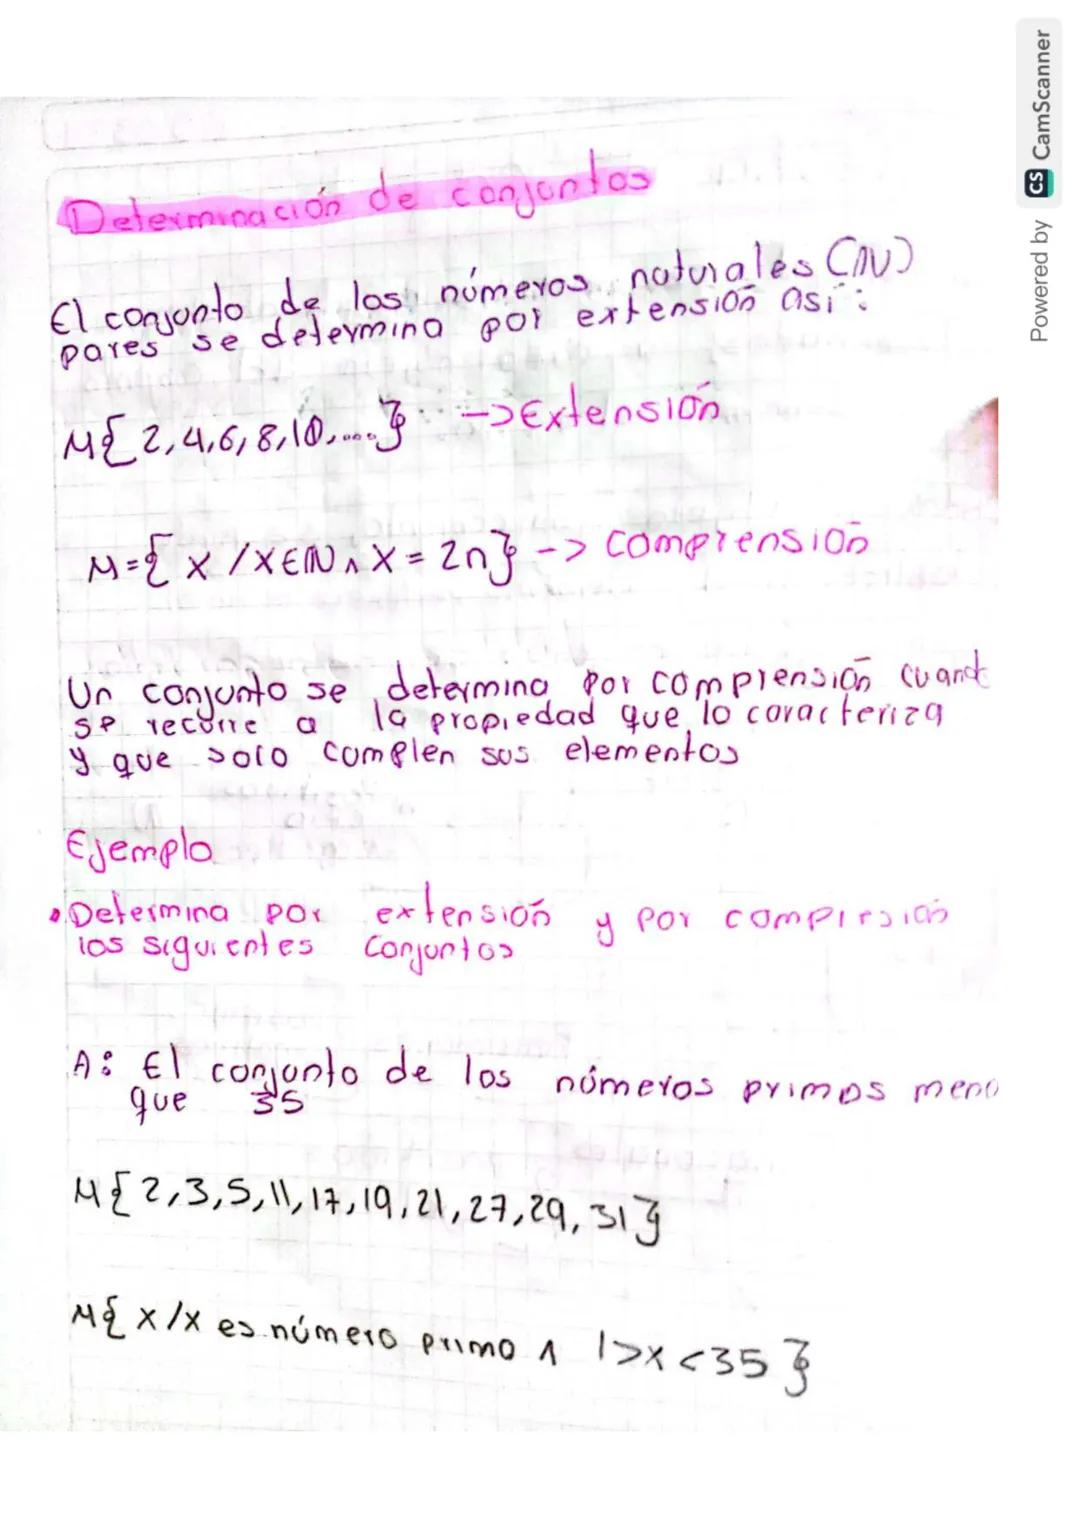 Determinación de conjuntos
El conjunto de los números naturales (IN)
pares se determina por extensión asi:
M{2,4,6,8,10,....} ->Extensión
M={x/x∈IN ∧ x = 2n} -> comprensión
Un conjunto se determina por comprensión cuand
se recurre a la propiedad que lo caracteriza
y que solo cumplen sus elementos
Ejemplo
• Determina por extensión y por compresión
los siguientes conjuntos
A: El conjunto de los números primos meno
que 35
M{2,3,5,11,17,19,21,27,29,31}
M{x/x es número primo ∧ 1>x<35}
Powered by CS CamScanner